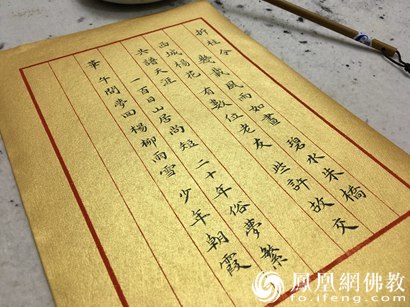 折桂令 數載風雨如畫 碧水朱橋
西城楊花 有數位老友 些許故交
共譜天涯 一百日山居尚短 二十年俗夢繁
華 午間夢回 楊柳雨雪 少年朝霞
鳳凰網佛教
fo.ifeng.com